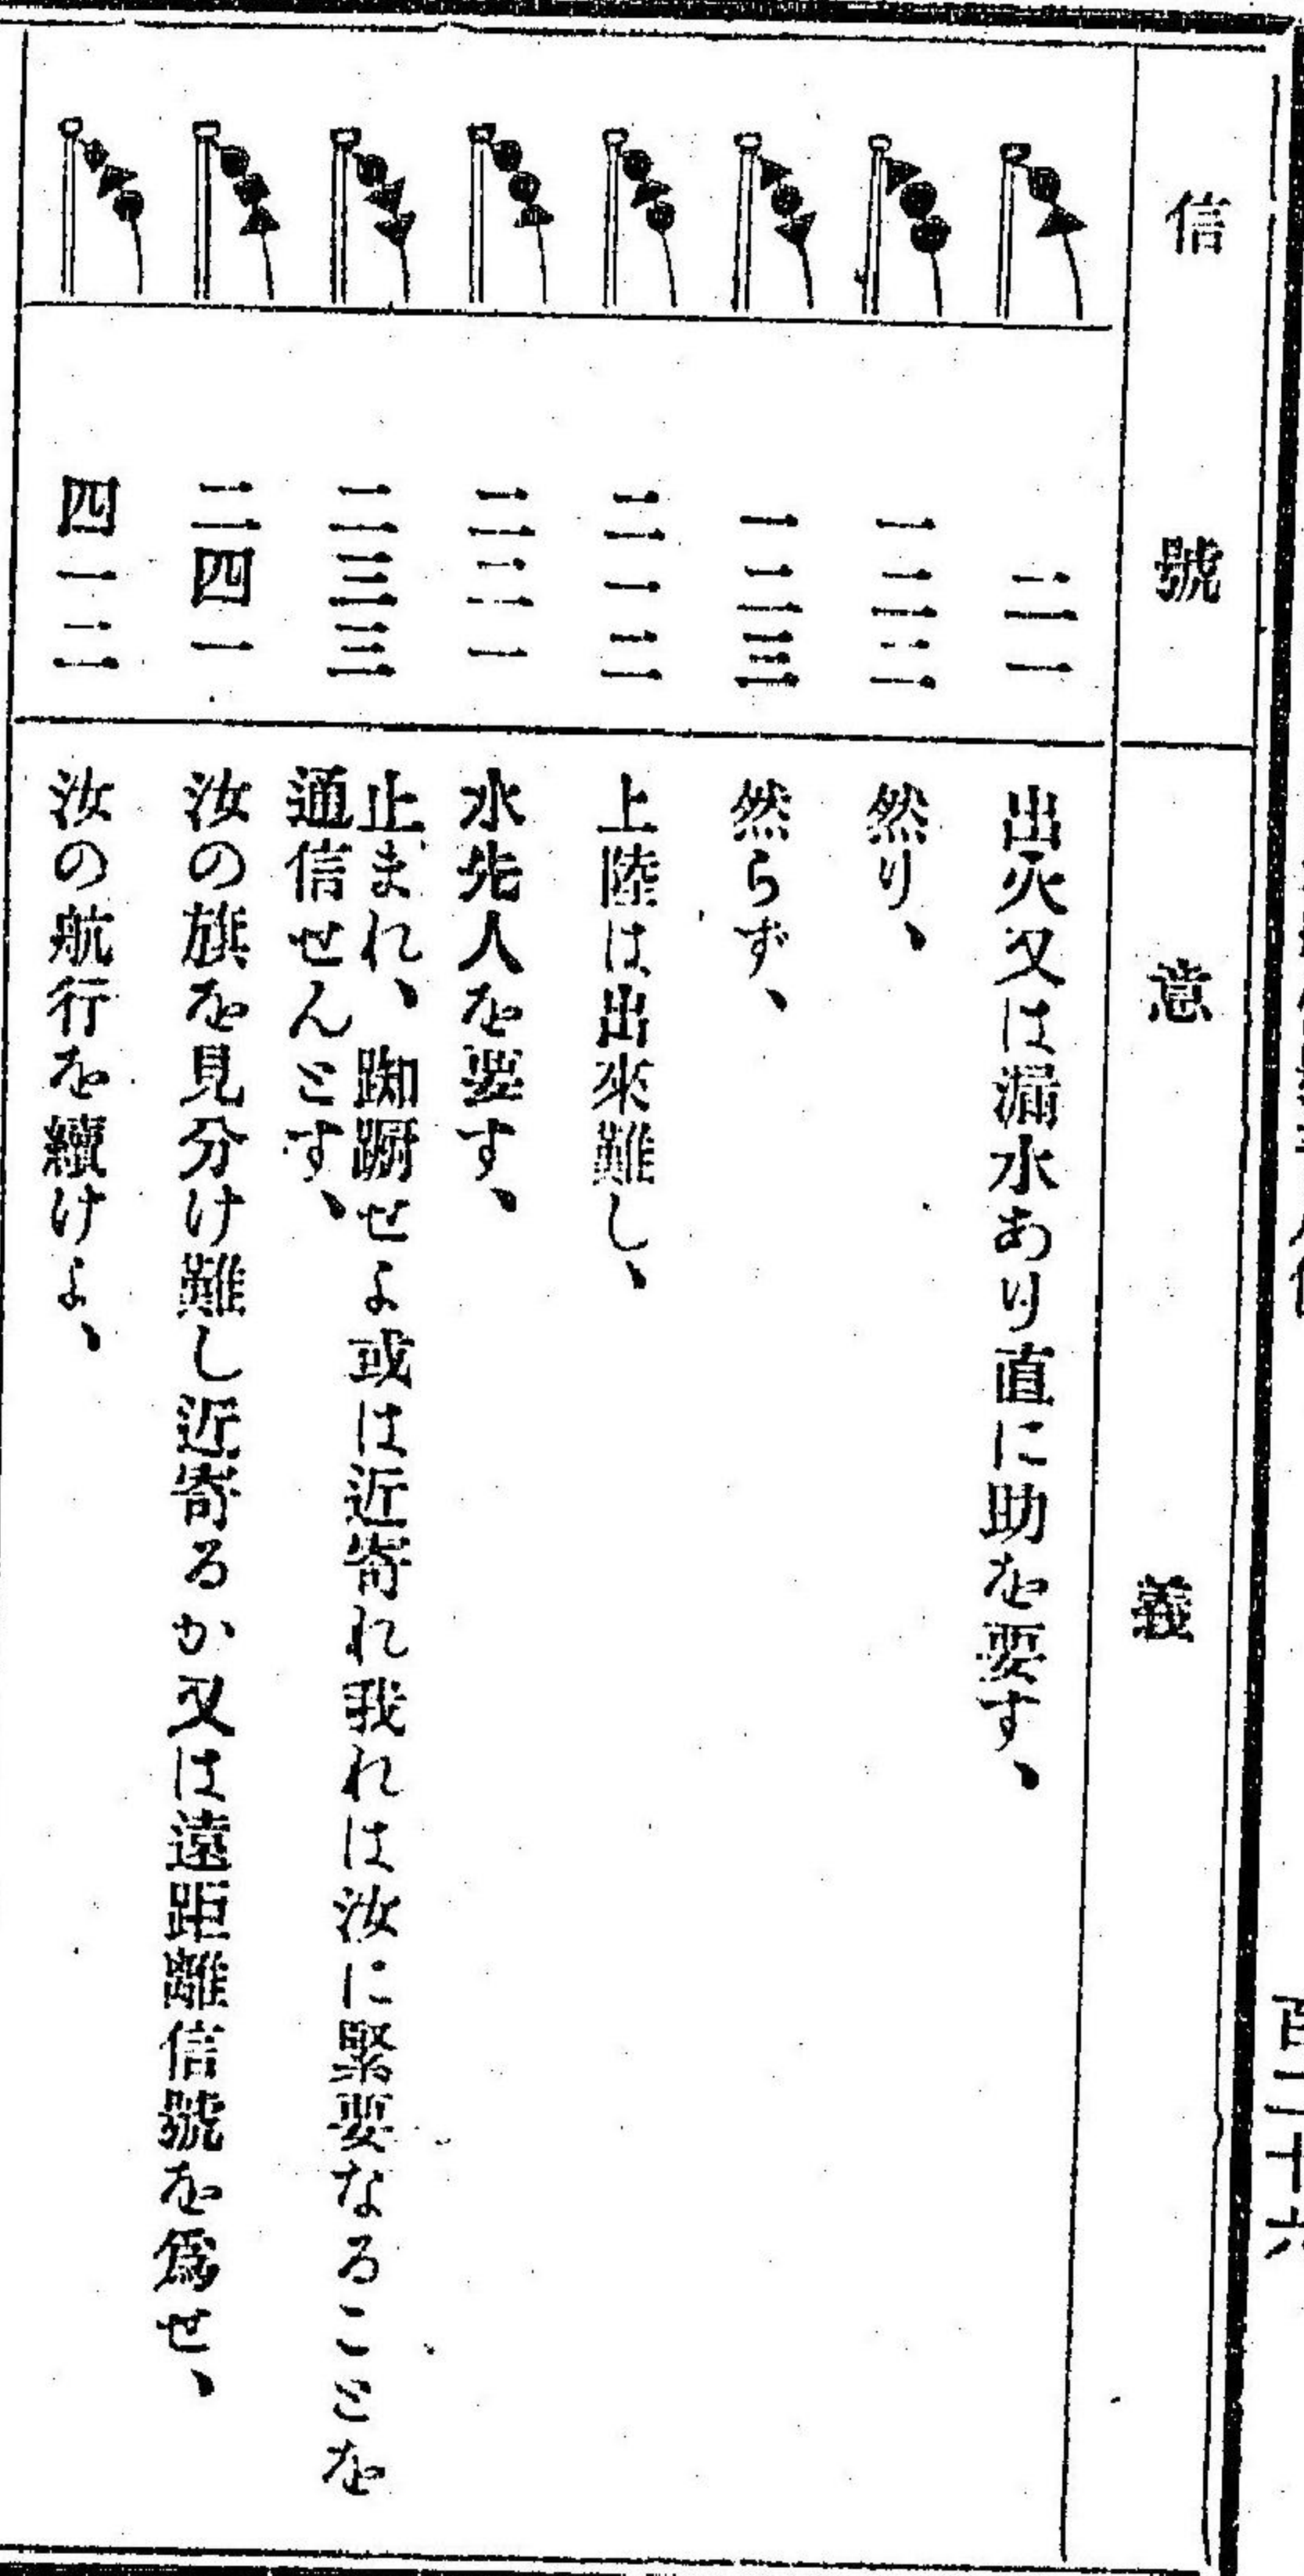 百二十六
信號
意義
二一
出火又は漏水あり直に助を要す、
一二二
然り、
一二三
然らず、
二一二
上陸は出來難し、
二二一
水先人を要す、
二三三
止まれ、踟躕せよ或は近寄れ我れは汝に緊要なることを
通信せんとす、
二四一
汝の旗を見分け難し近寄るか又は遠距離信號を爲せ、
四一二
汝の航行を續けよ、